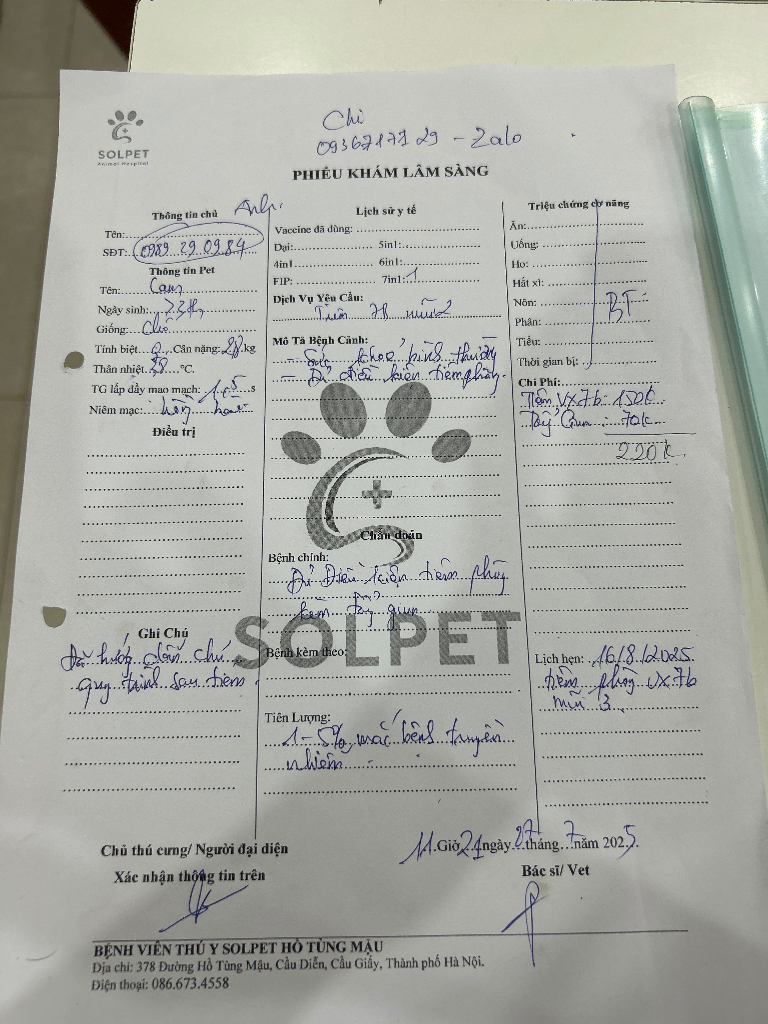 SOLPET
Animal Hospital
Chi
0936717129 - Zalo
PHIẾU KHÁM LÂM SÀNG
Thông tin chủ
Anh.
Tên:
SĐT: 0989.29.09.84
Thông tin Pet
Tên: Cam
Ngày sinh:
Giống: Chó
Tính biệt Cân nặng: 2,8 kg
Thân nhiệt 38 °C.
TG lấp đầy mao mạch: 1,5 s
Niêm mạc: hồng hào
Điều trị
Ghi Chú
Đã hướng dẫn chủ
quy trình sau tiêm
Lịch sử y tế
Vaccine đã dùng:
Dại: 5in1:
4in1 6in1:
FIP: 7in1: 1
Dịch Vụ Yêu Cầu:
Tiêm 7b mũi 2
Mô Tả Bệnh Cảnh:
- Sức khoẻ bình thường
- Đủ điều kiện tiêm phòng
Chẩn đoán
Bệnh chính:
Đủ Điều kiện tiêm phòng
kèm tẩy giun
SOLPET
Bệnh kèm theo:
Tiên Lượng:
1-5% mắc bệnh truyền
nhiễm
Triệu chứng cơ năng
Ăn:
Uống:
Ho:
Hắt xì:
Nôn: BT
Phân:
Tiểu:
Thời gian bị:
Chi Phí:
Tiêm VX7b: 150k
Tẩy Giun: 70k
220k.
Lịch hẹn: 16/8/2025
tiêm phòng VX7b
mũi 3.
Chủ thú cưng/ Người đại diện
Xác nhận thông tin trên
11 Giờ 21 ngày 27 tháng 7 năm 2025
Bác sĩ/ Vet
BỆNH VIỆN THÚ Y SOLPET HỒ TÙNG MẬU
Địa chỉ: 378 Đường Hồ Tùng Mậu, Cầu Diễn, Cầu Giấy, Thành phố Hà Nội.
Điện thoại: 086.673.4558